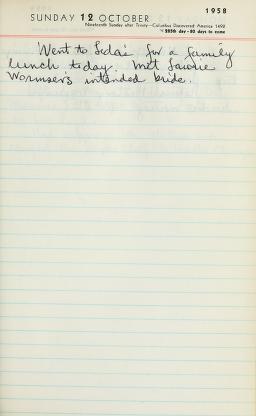 1958
SUNDAY 12 OCTOBER
Nineteenth Sunday after Trinity—Columbus Discovered America 1492
285th day - 80 days to come
Went to for a family
lunch today. Met
Wormser's intended bride.